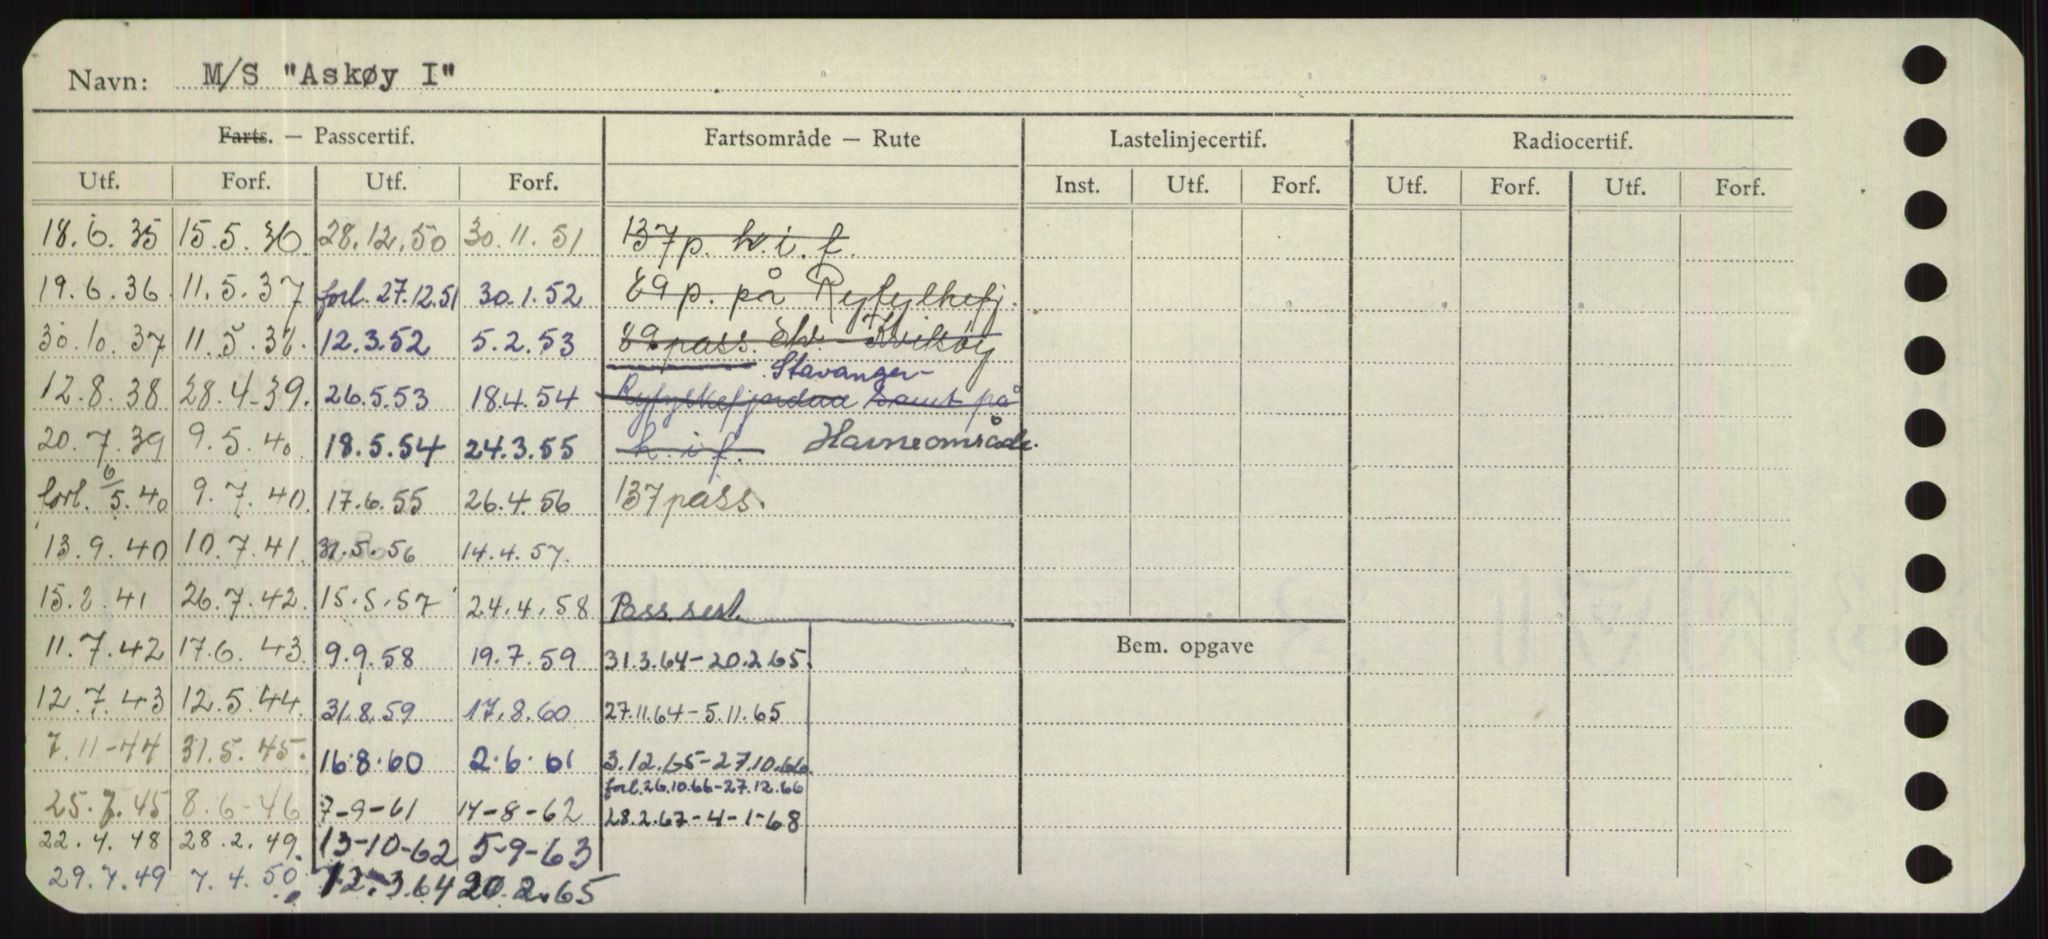 Navn: M/S "Askøy I"
Farts. — Passcertif. Fartsområde — Rute Lastelinjecertif. Radiocertif.
Utf. Forf. Utf. Forf. Inst. Utf. Forf. Utf. Forf. Utf. Forf.
18.6.35 15.5.36 28.12.50 30.11.51 137 p. h.i.f.
19.6.36 11.5.37 forl. 27.12.51 30.1.52 89 p. på Ryfylkefj.
30.10.37 11.5.38. 12.3.52 5.2.53 89 pass. Kviksøy
Stavanger-
12.8.38 28.4-39. 26.5.53 18.4.54 Ryfylkefjordane samt på
20.7.39 9.5.40 18.5.54 24.3.55 h.i.f. Havneområde.
forl. 6/5.40 9.7.40. 17.6.55 26.4.56 137 pass.
13.9.40 10.7.41. 31.5.56 14.4.57.
15.8.41 26.7.42. 15.5.57 24.4.58 Pass.sert.
11.7.42 17.6.43 9.9.58 19.7.59 31.3.64-20.2.65. Bem. opgave
12.7.43 12.5.44. 31.8.59 17.8.60 27.11.64-5.11.65
7.11-44 31.5.45. 16.8.60 2.6.61 3.12.65-27.10.66.
forl. 26.10.66-27.12.66
25.7.45 8.6-46 7-9-61 14-8-62 28.2.67-4-1-68
22.4.48 28.2.49. 13-10-62 5-9-63
29.4.49 7.4.50 12.3.64 20.2.65